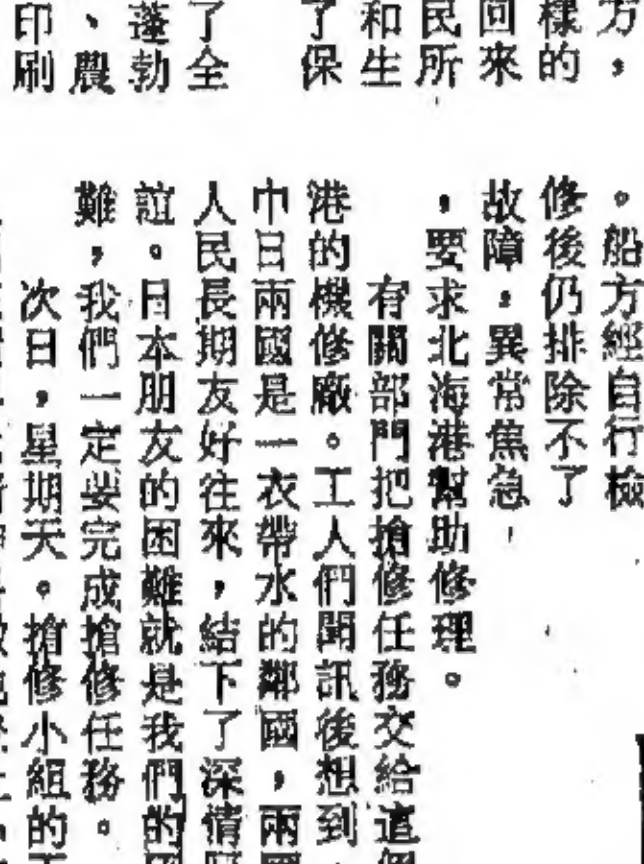 方，
樣的
回來
民所
和生
了保
了全
蓬勃
、農
印刷
。船方經自行檢
修後仍排除不了
故障，異常焦急，
，要求北海港幫助修理。
有關部門把搶修任務交給這個
港的機修廠。工人們聞訊後想到，
中日兩國是一衣帶水的鄰國，兩國
人民長期友好往來，結下了深情
誼。日本朋友的困難就是我們的
難，我們一定要完成搶修任務。
次日，星期天。搶修小組的